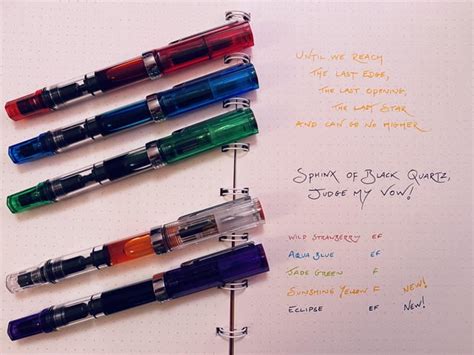 UNTIL WE REACH
THE LAST EDGE,
THE LAST OPENING,
THE LAST STAR
AND CAN GO NO HIGHER
SPHINX OF BLACK QUARTZ,
JUDGE MY VOW!
WILD STRAWBERRY EF
AQUA BLUE EF
JADE GREEN F
SUNSHINE YELLOW F NEW!
ECLIPSE EF NEW!